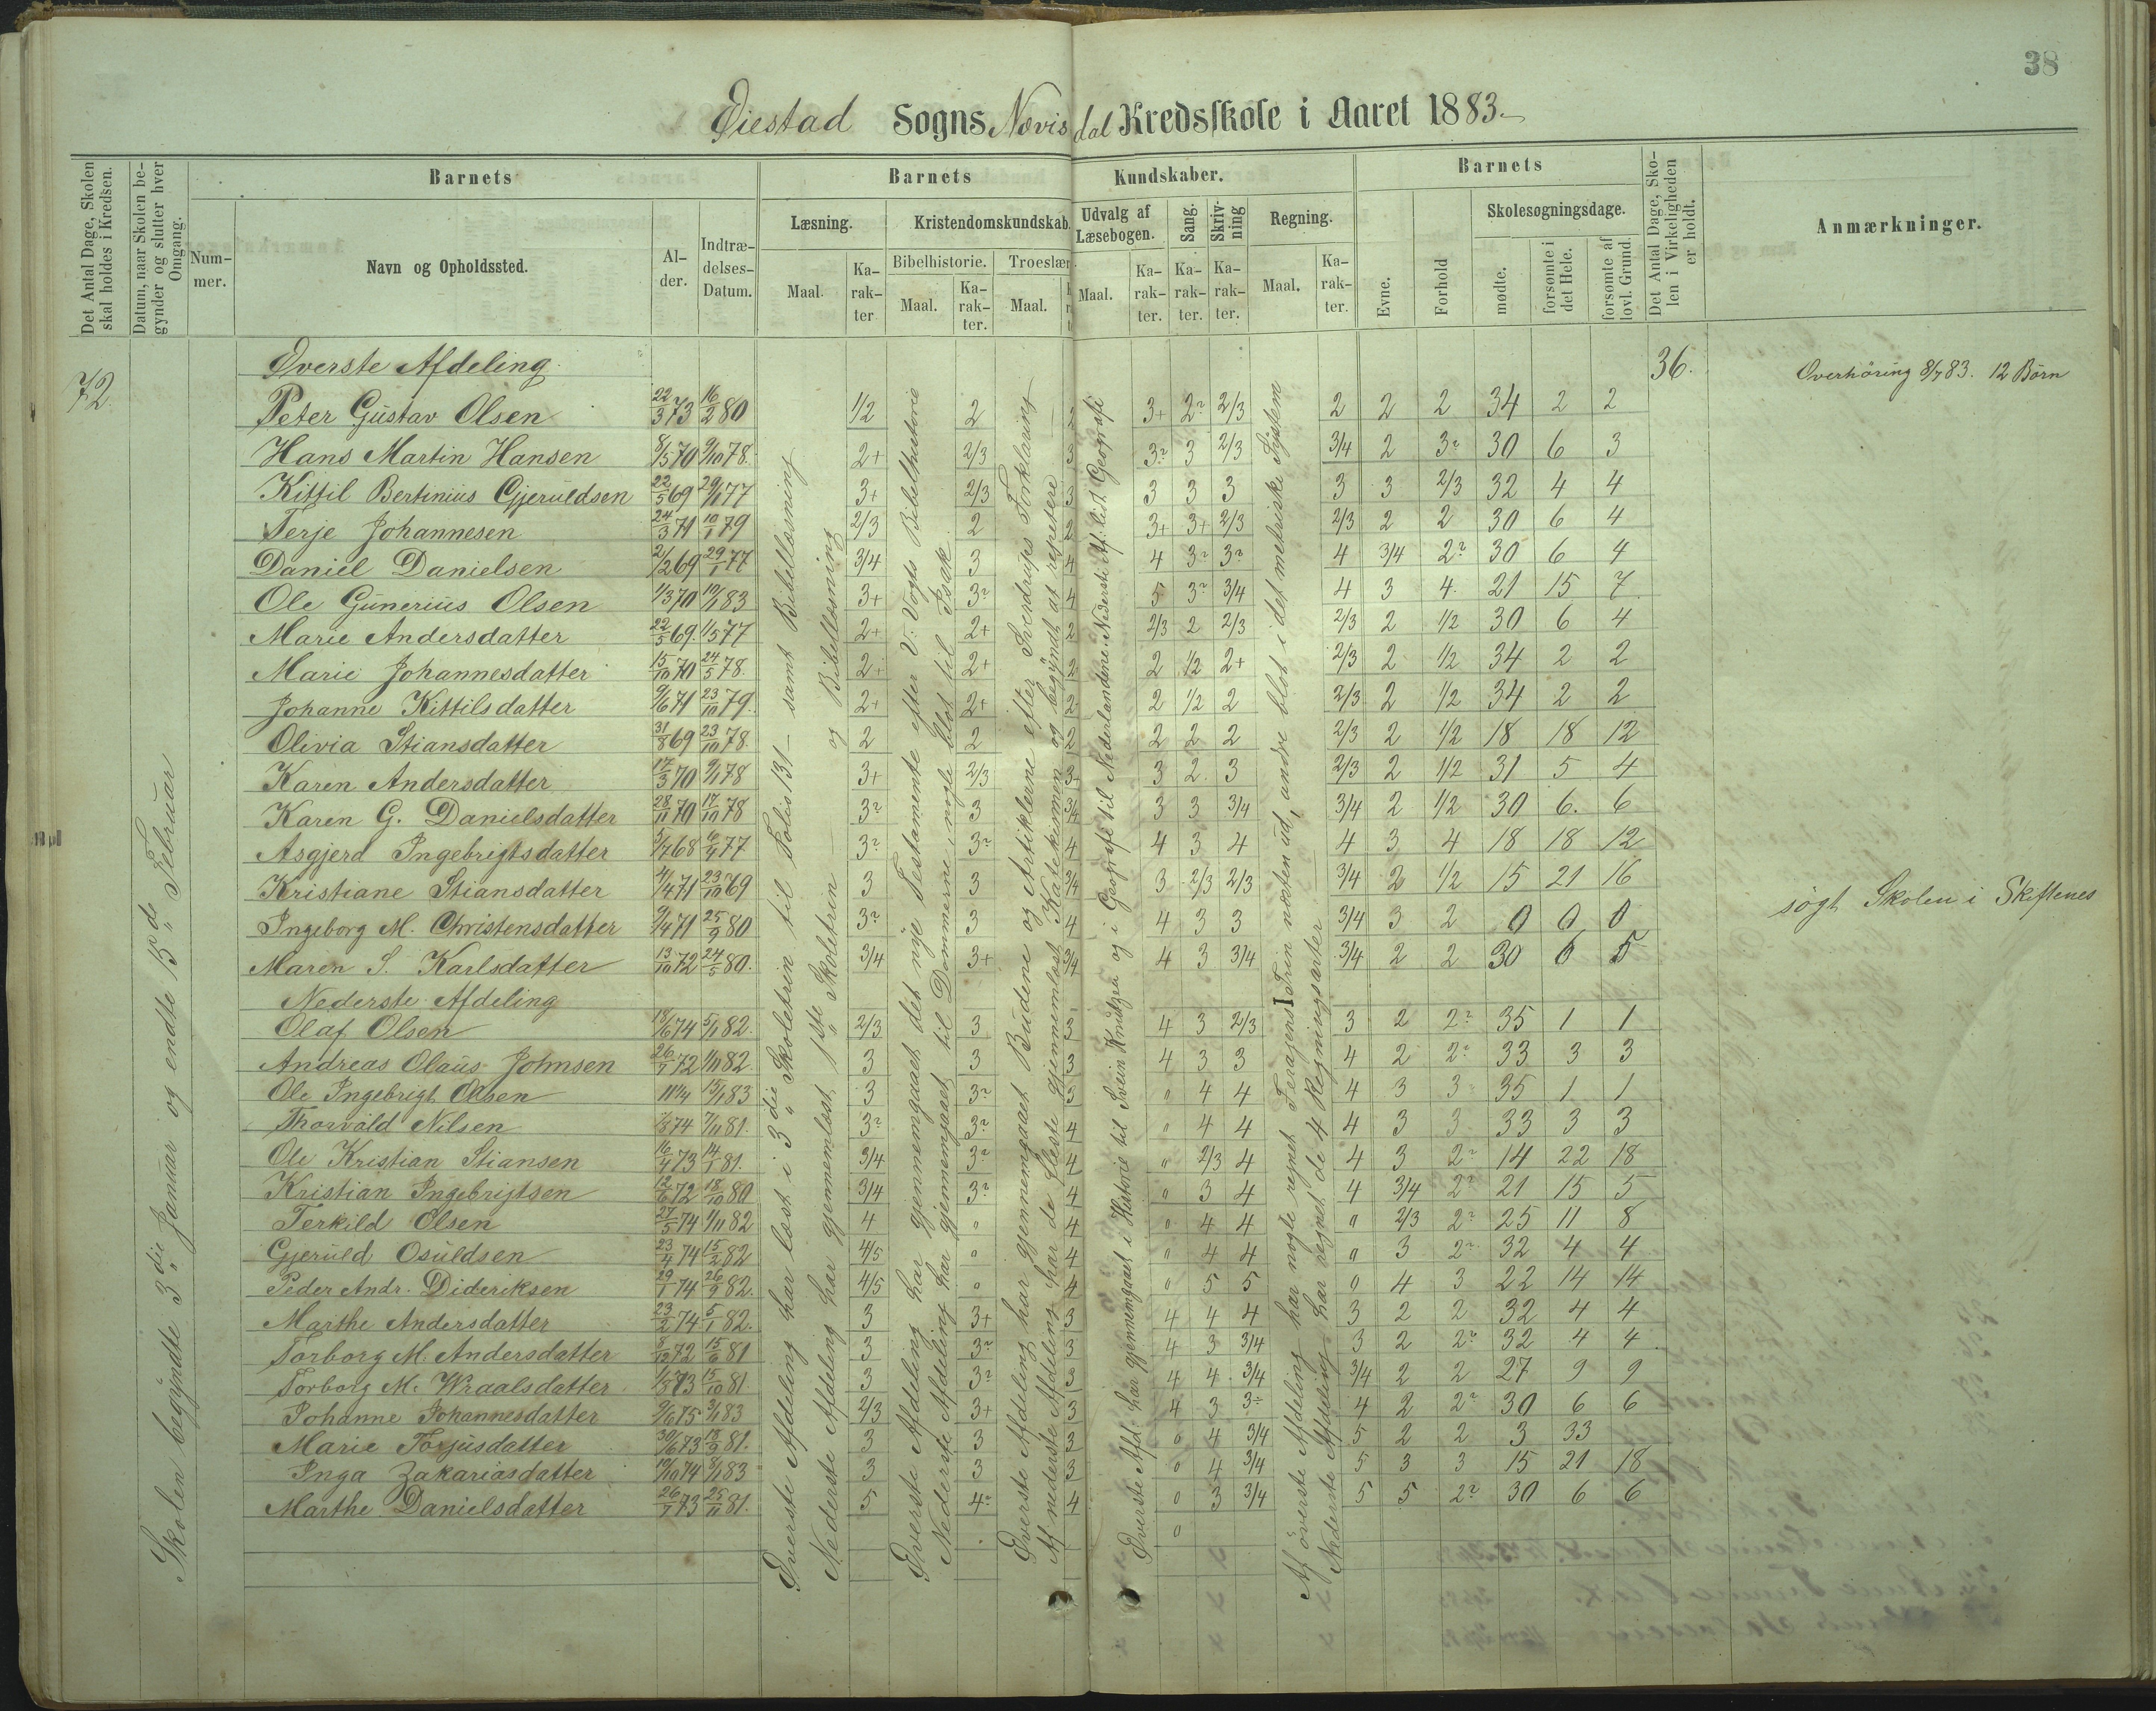 38
Øiestad Sogns Nævisdal Kredsskole i Aaret 1883.
Det Antal Dage, Skolen skal holdes i Kredsen.
Datum, naar Skolen begynder og slutter hver Omgang.
Barnets
Nummer.
Navn og Opholdssted.
Alder.
Indtrædelses-Datum.
Barnets Kundskaber.
Læsning.
Maal. Karakter
Kristendomskundskab.
Bibelhistorie. Troeslær
Maal. Karakter. Maal.
Udvalg af Læsebogen.
Maal. Karakter.
Sang. Karakter.
Skrivning Karakter.
Regning.
Maal. Karakter.
Barnets
Evne. Forhold
Skolesøgningsdage.
mødte. forsømte i det Hele. forsømte af lovl. Grund.
Det Antal Dage, Skolen i Virkeligheden er holdt.
Anmærkninger.
72.
Skolen begyndte 3die Januar og endte 15de Februar
Øverste Afdeling 36. Overhöring 8/7 83. 12 Börn
Peter Gustav Olsen 22/3 73 16/2 80 1/2 2 2 3+ 2? 2/3 2 2 2 34 2 2
Hans Martin Hansen 8/5 70 9/10 78. 2+ 2/3 3 3? 3 2/3 3/4 2 3? 30 6 3
Kittil Bertinius Gjeruldsen 22/5 69 29/1 77 3+ 2/3 3 3 3 3 3 3 2/3 32 4 4
Terje Johannesen 24/3 71 10/1 79 2/3 2 2 3+ 3+ 2/3 2/3 2 2 30 6 4
Daniel Danielsen 2/2 69 29/1 77 3/4 3 4 4 3? 3? 4 3/4 2? 30 6 4
Ole Gunerius Olsen 1/3 70 10/1 83 3+ 3? 4 5 3? 3/4 4 3 4. 21 15 7
Marie Andersdatter 22/5 69. 1/5 77 2+ 2+ 2 2/3 2 2/3 2/3 2 1/2 30 6 4
Marie Johannesdatter 15/10 70 24/5 78. 2+ 2+ 2 2 1/2 2+ 2/3 2 1/2 34 2 2
Johanne Kittilsdatter 9/6 71 23/10 79. 2+ 2+ 2 2 1/2 2 2/3 2 1/2 34 2 2
Olivia Stiansdatter 31/8 69 23/10 78. 2 2 2 2 2 2 2/3 2 1/2 18 18 12
Karen Andersdatter 17/3 70 9/1 78 3+ 2/3 3+ 3 2. 3 2/3 2 1/2 31 5 4
Karen G. Danielsdatter 28/11 70 17/10 78 3? 3 3/4 3 3 3/4 3/4 2 1/2 30 6. 6
Asgjerd Ingebrigtsdatter 5/7 68 6/4 77 3? 3? 4 4 3 4 4 3 4 18 18 12
Kristiane Stiansdatter 4/4 71 23/10 69 3 3 3/4 3 2/3 2/3 3/4 2 1/2 15 21 16
Ingeborg M. Christensdatter 9/4 71 25/9 80 3? 3 4 4 3 3 3/4 3 2 0 0 0 søgt Skolen i Skiftenes
Maren S. Karlsdatter 13/10 72 24/5 80. 3/4 3+ 3/4 4 3 3/4 3/4 2 2 30 6 5
Nederste Afdeling
Olaf Olsen 18/6 74 5/1 82. 2/3 3 3 4 3 2/3 3 2 2? 35 1 1
Andreas Olaus Johnsen 26/1 72 1/11 82. 3 3 3 4 3 3 4 2 2? 33 3 3
Ole Ingebrigt Olsen 3 3? 3 " 4 4 4 3 3 35 1 1
Thorvald Nilsen 7/11 81. 3? 3? 4 " 4 4 4 3 3 33 3 3
Ole Kristian Stiansen 16/4 73 14/1 81. 3/4 3? 4 " 2/3 4 4 3 2? 14 22 18
Kristian Ingebrigtsen 12/6 72 18/10 80 3/4 3? 4 " 3 4 4 3/4 2? 21 15 5
Terkild Olsen 27/5 74 1/11 82 4 " 4 " 4 4 " 2/3 2? 25 11 8
Gjeruld Osuldsen 23/4 74 15/2 82 4/5 " 4 " 4 4 " 3 2? 32 4 4
Peder Andr. Dideriksen 29/1 74 26/9 82. 4/5 " 4 " 5 5 " 4 3 22 14 14
Marthe Andersdatter 23/2 74 5/1 82. 3 3+ 3 4 4 4 3 2 2 32 4 4
Torborg M. Andersdatter 8/12 72 15/6 81 3 3? 3 4 3 3/4 3 2 2? 32 4 4
Torborg M. Wraalsdatter 1/8 73 5/10 81. 3 3? 3 4 4. 3/4 3/4 2 2 27 9 9
Johanne Johannesdatter 9/6 75 3/1 83 2/3 3+ 3 4 3 3÷ 4 2 2? 30 6 6
Marie Torjusdatter 30/6 73 18/9 81. 3 3 3 " 4 3/4 5 2 2 3 33
Inga Zakariasdatter 10/10 74 8/1 83 3 3 3 " 4 3/4 5 3 3 15 21 18
Marthe Danielsdatter 26/1 73 25/11 81. 5 4? 4 " 3 3/4 5 5 2? 30 6 6
Øverste Afdeling har læst i 3die Skoletrin til Folio 131 – samt Bibellæsning
Nederste Afdeling har gjennemlæst 1ste Skoletrin og Bibellæsning
Øverste Afdeling har gjennemgaaet det nye Testamente efter V. Vogts Bibelhistorie
Nederste Afdeling har gjennemgaaet til Dommerne, nogle blot til Isak.
Øverste Afdeling har gjennemgaaet Budene og Artiklerne efter Sverdrups Forklaring
Af nederste Afdeling har de fleste gjennemlæst Katekismen og begyndt at repetere
Øverste Afd. har gjennemgaaet i Historie til Svein Knutzen og i Geografi til Nederlandene. Nederste Af. lidt Geografi
Af överste Afdeling har nogle regnet Feragens I Trin næsten ud, andre blot i det metriske System
Nederste Afdeling har regnet de 4 Regningsarter